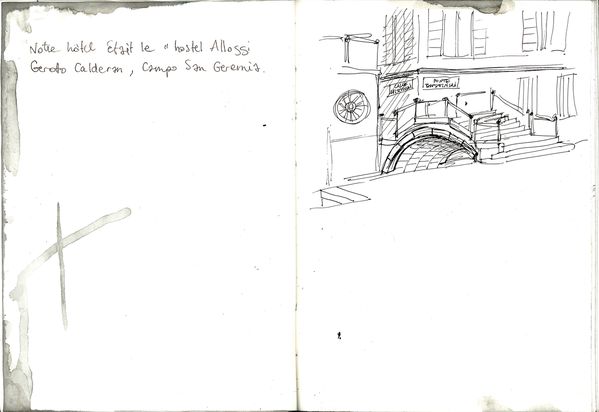 Notre hôtel Etait le "hostel Alloggi
Geroto Calderan, Campo San Geremia.
PONTE